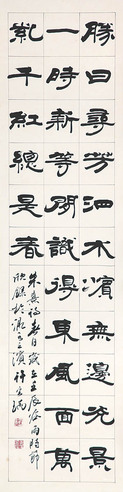 勝日尋芳泗水濱無邊光景
一時新等閒識得東風面萬
紫千紅總是春
朱熹詩春日歲在壬辰谷雨時節
錄於之濱許